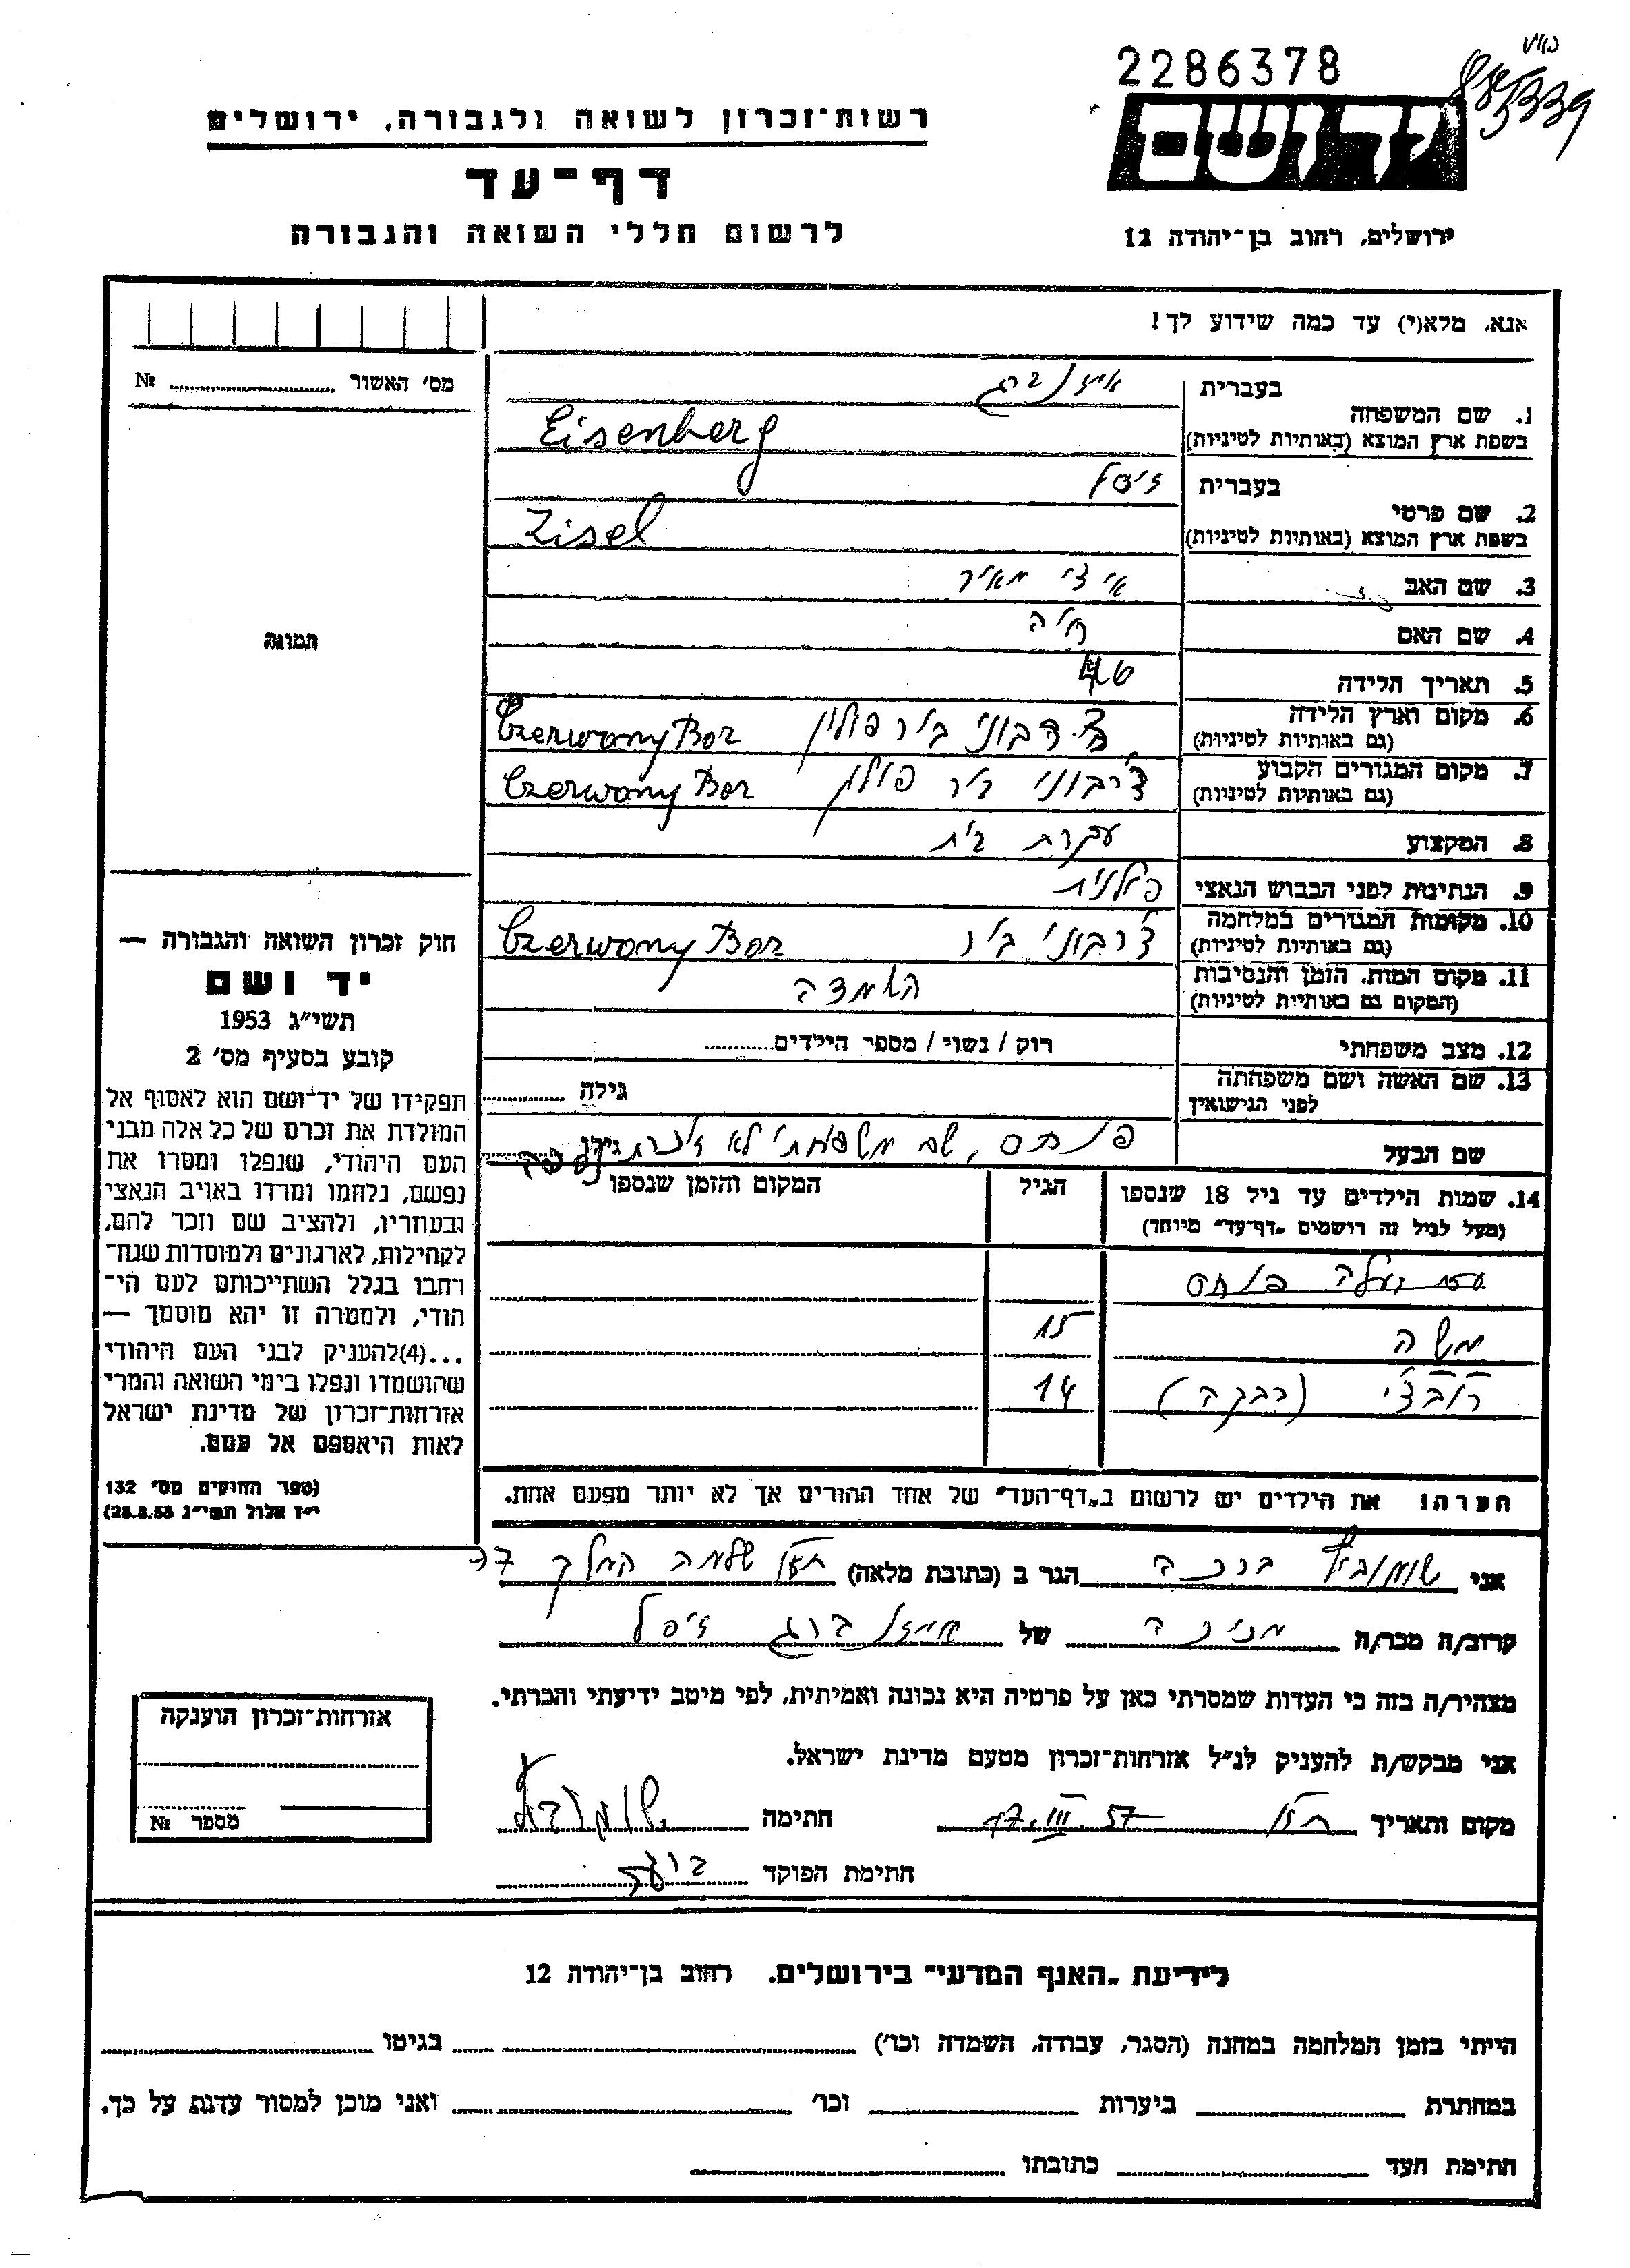 2286378
רשות־זכרון לשואה ולגבורה, ירושלים
יד ושם
דף־עד
לרשום חללי השואה והגבורה
ירושלים, רחוב בן־יהודה 12
אנא, מלא(י) עד כמה שידוע לך!
מס' האשור № 
1. שם המשפחה בעברית איזנברג
בשפת ארץ המוצא (באותיות לטיניות) Eisenberg
2. שם פרטי בעברית זיסל
בשפת ארץ המוצא (באותיות לטיניות) Zisel
3. שם האב איצי מאיר
4. שם האם חיה
5. תאריך הלידה
6. מקום וארץ הלידה (גם באותיות לטיניות) בור פולין Czerwony Bor
7. מקום המגורים הקבוע (גם באותיות לטיניות) צ'רבוני בור פולין Czerwony Bor
8. המקצוע עקרת בית
9. הנתינות לפני הכבוש הנאצי פולנית
10. מקומות המגורים במלחמה (גם באותיות לטיניות) צ'רבוני בור Czerwony Bor
11. מקום המות, הזמן והנסיבות (המקום גם באותיות לטיניות) השמדה
12. מצב משפחתי רוק / נשוי / מספר הילדים
13. שם האשה ושם משפחתה לפני הנישואין גילה
שם הבעל פנחס, שם משפחתו לא זוכרת גילו
14. שמות הילדים עד גיל 18 שנספו הגיל המקום והזמן שנספו
(מעל לגיל זה רושמים "דף־עד" מיוחד)
פנחס
משה 15
(רבקה) 14
הערה! את הילדים יש לרשום ב"דף־העד" של אחד ההורים אך לא יותר מפעם אחת.
תמונה
חוק זכרון השואה והגבורה —
יד ושם
תשי"ג 1953
קובע בסעיף מס' 2
תפקידו של יד־ושם הוא לאסוף אל
המולדת את זכרם של כל אלה מבני
העם היהודי, שנפלו ומסרו את
נפשם, נלחמו ומרדו באויב הנאצי
ובעוזריו, ולהציב שם וזכר להם,
לקהילות, לארגונים ולמוסדות שנח־
רחבו בגלל השתייכותם לעם הי־
הודי, ולמטרה זו יהא מוסמך —
...(4)להעניק לבני העם היהודי
שהושמדו ונפלו בימי השואה והמרי
אזרחות־זכרון של מדינת ישראל
לאות היאספם אל עמם.
(ספר החוקים מס' 132
י"ז אלול תשי"ג 28.8.53)
אני ברכה הגר ב (כתובת מלאה) שלמה המלך 37
קרוב/ה מכר/ה מכירה של איזנברג זיסל
מצהיר/ה בזה כי העדות שמסרתי כאן על פרטיה היא נכונה ואמיתית, לפי מיטב ידיעתי והכרתי.
אני מבקש/ת להעניק לנ"ל אזרחות־זכרון מטעם מדינת ישראל.
מקום ותאריך 17.III.57 חתימה
חתימת הפוקד
אזרחות־זכרון הוענקה
מספר №
לידיעת "האגף המדעי" בירושלים. רחוב בן־יהודה 12
הייתי בזמן המלחמה במחנה (הסגר, עבודה, השמדה וכו') בגיטו
במחתרת ביערות וכו' ואני מוכן למסור עדות על כך.
חתימת העד כתובתו